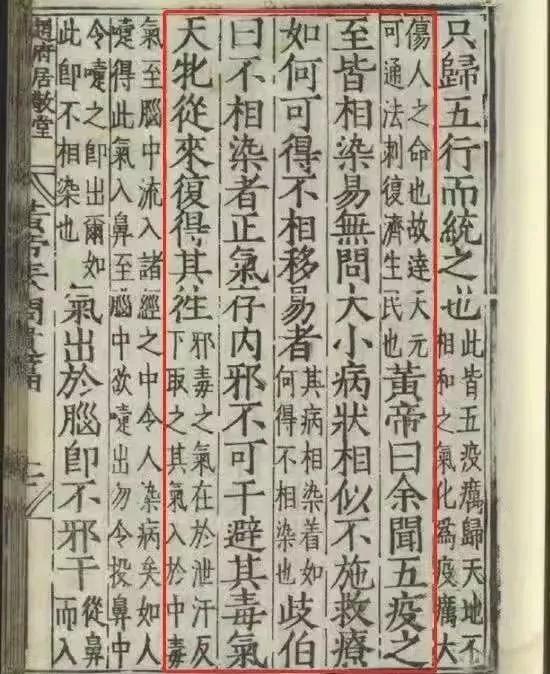 只歸五行而統之也
此皆五疫癘歸天地不
相和之氣化爲疫癘大
傷人之命也故達天元
可通法刺復濟生民也
黃帝曰余聞五疫之
至皆相染易無問大小病狀相似不施救療
如何可得不相移易者
其病相染着如
何得不相染也
歧伯
曰不相染者正氣存内邪不可干避其毒氣
天牝從來復得其徃
邪毒之氣在於泄汗反
下取之其氣入於中毒
氣至腦中流入諸經之中令人染病矣如人
嚏得此氣入鼻至腦中欲嚏出勿令投鼻中
令嚏之即出爾如
此即不相染也
氣出於腦即不邪干
從鼻
而入
趙府居敬堂
黃帝素問遺篇